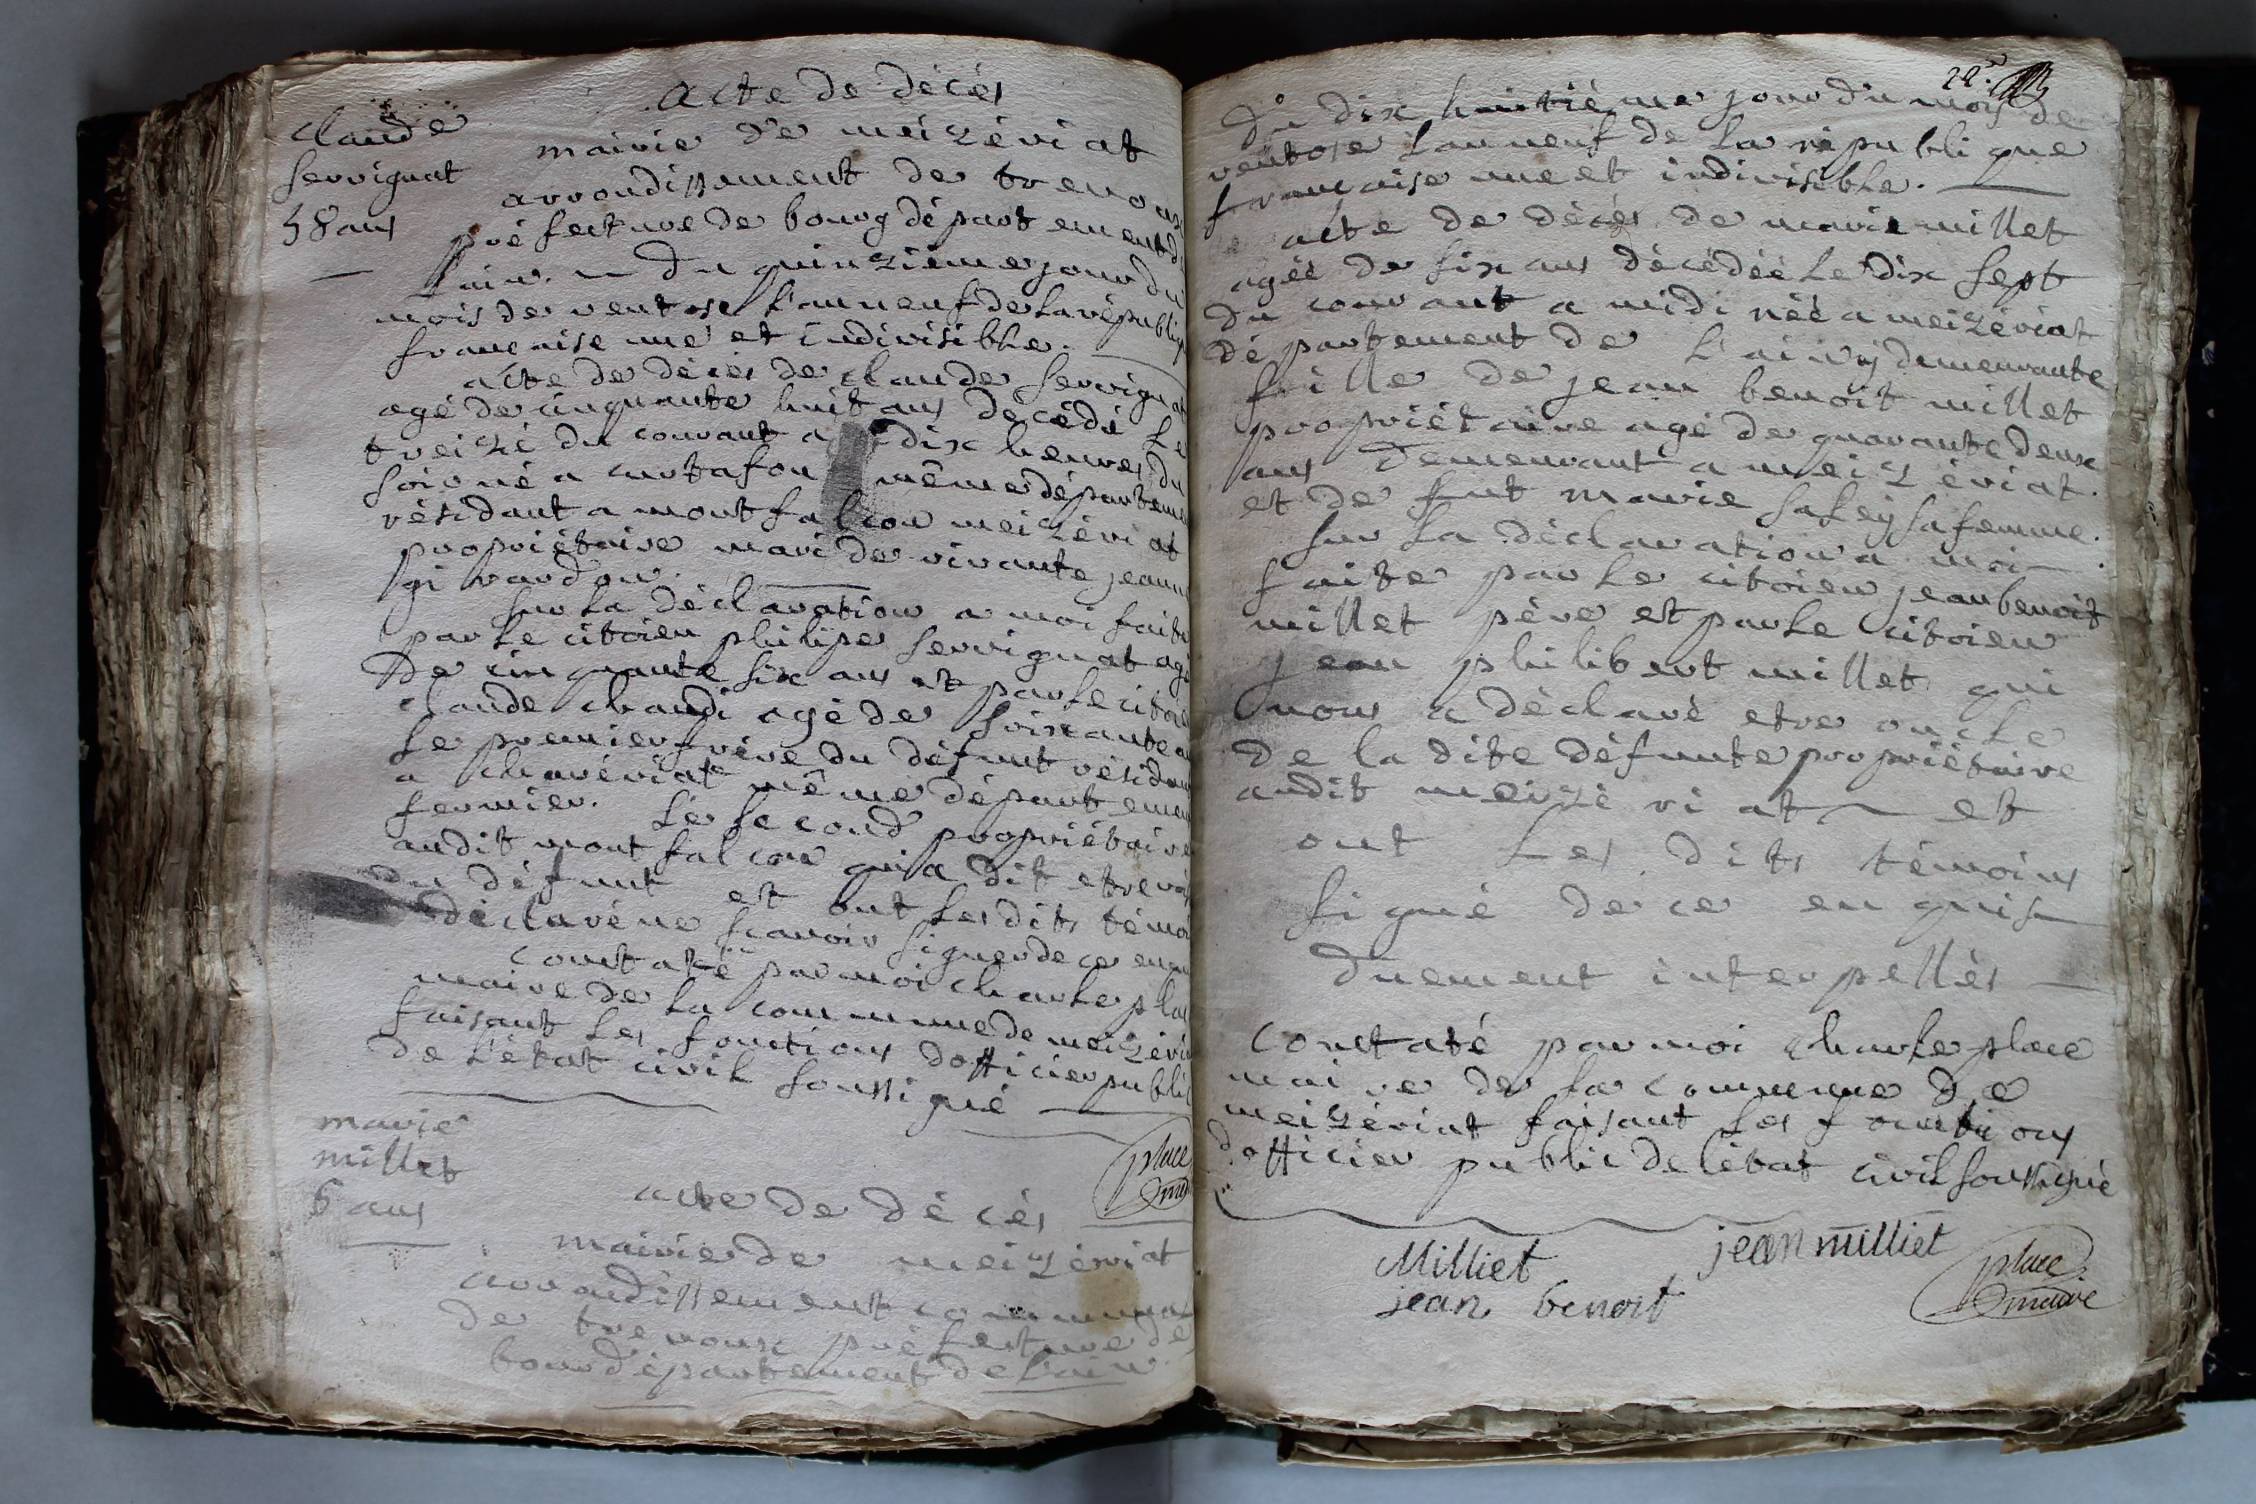 acte de décés
claude
servignat
58 ans
mairie de meizériat
arrondissement de trevoux
préfecture de bourg département d
l'ain. du quinzième jour du
mois de ventose l'an neuf de la républiq
francaise une et indivisible.
acte de décés de claude servignat
agé de cinquante huit ans décédé le
treizé du courant a dix heures du
soir né a curtafon même départeme
résidant a montfalcon meizériat
propriétaire mari de vivante jeanne
girardon.
sur la déclaration a moi faite
par le citoien philipe servignat agé
de cinquante six ans et par le citoie
claude chaudi agé de soixante a
le premier frère du défunt résidant
a chavériat même département
fermier. le second propriétaire
audit montfalcon qui a dit etre voi
du défunt et ont les dits témo
déclaré ne scavoir signer de ce enqui
constaté par moi charle plac
maire de la commune de meizéria
faisant les fonctions dofficier public
de l'état civil soussigné
place
marie
millet
6 ans
acte de décés
mairie de meizériat
arrondissement communal
de trevoux préfecture de
bour département de l'ain
22.e
du dix huitième jour du mois de
ventose l'an neuf de la république
francaise une et indivisible.
acte de décés de marie millet
agée de six ans décédée le dix sept
du courant a midi née a meizériat
département de l'ain y demeurante
fille de jean benoit millet
propriétaire agé de quarante deux
ans demeurant a meizériat.
et de fut marie saley sa femme.
sur la déclaration a moi
faite par le citoien jean benoit
millet père et par le citoien
jean philibert millet qui
nous a déclaré etre oncle
de la dite défunte propriétaire
audit meizériat et
ont les dits témoins
signé de ce enquis
duement interpellés
constaté par moi charle place
maire de la commune de
meizériat faisant les fonctions
dofficier public de létat civil soussigné
Milliet jean milliet
jean benoit
place
maire